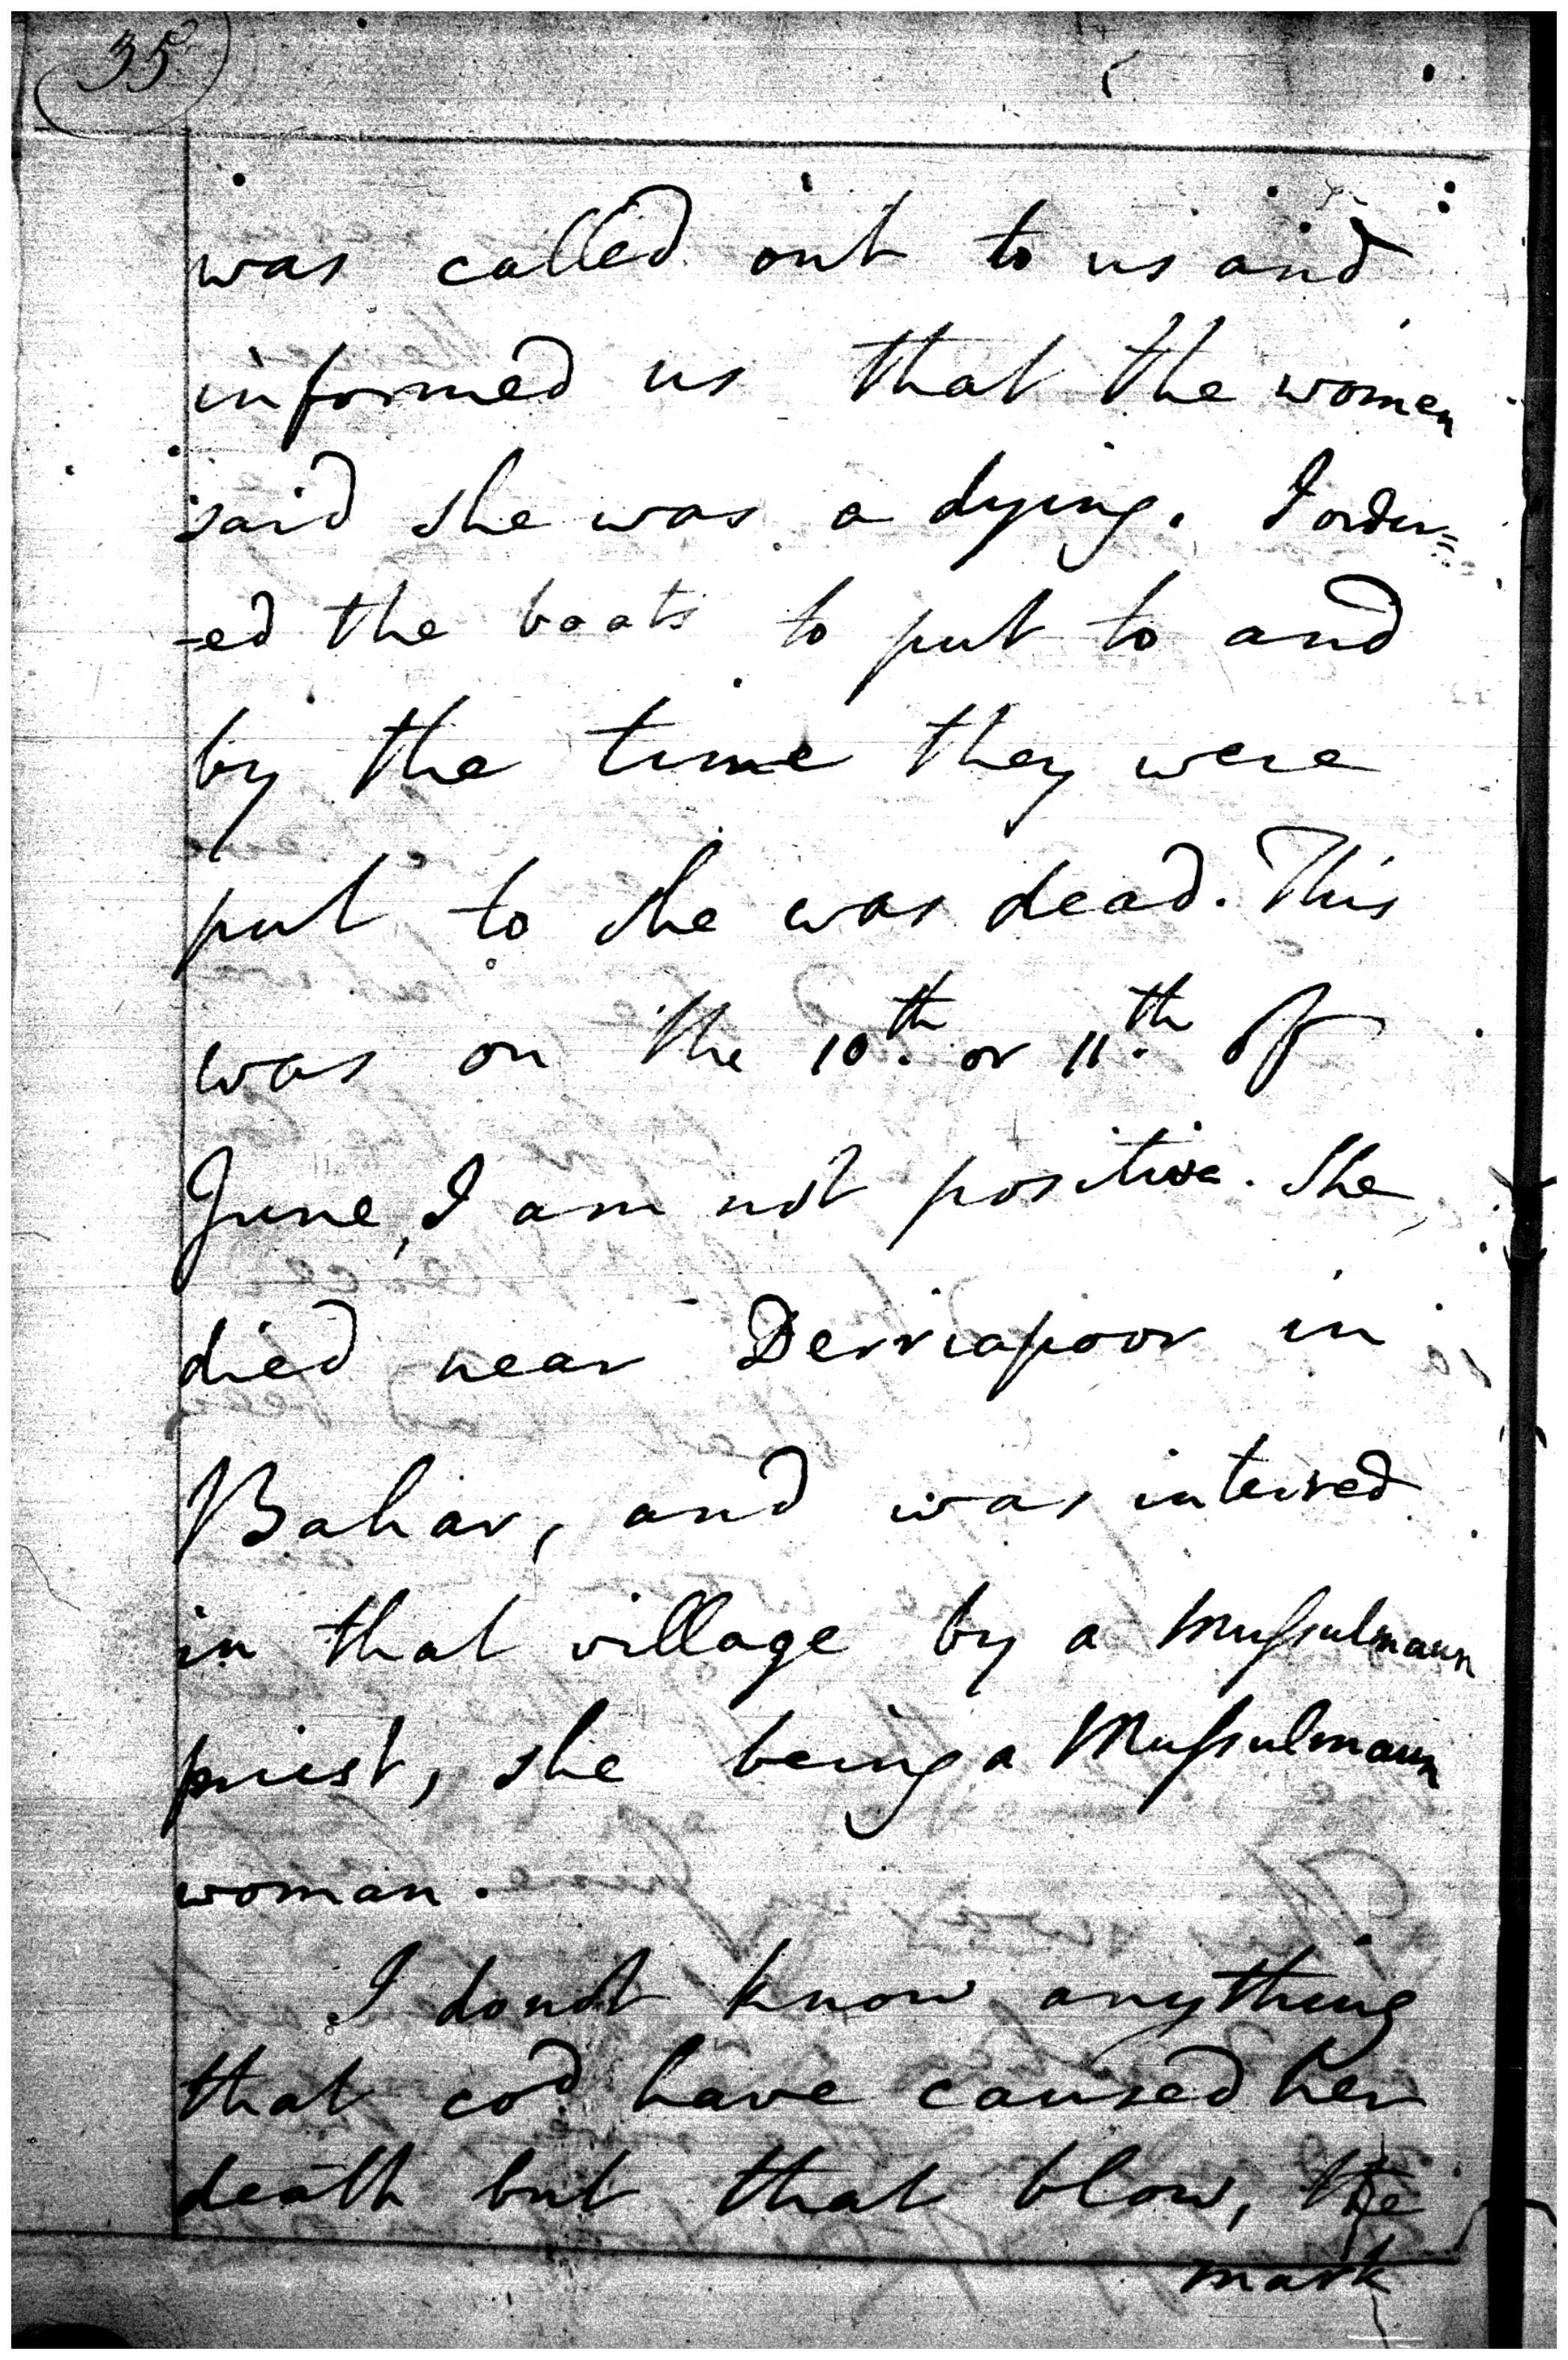 35
was called out to us and
informed us that the women
said she was a dying. I order=
-ed the boats to put to and
by the time they were
put to she was dead. This
was on the 10th. or 11th. of
June, I am not positive. She
died near Derriapoor in
Bahar, and was interred
in that village by a Mussulmaun
priest, she being a Mussulmaun
woman.
I dondt know anything
that cod. have caused her
death but that blow, the
mark